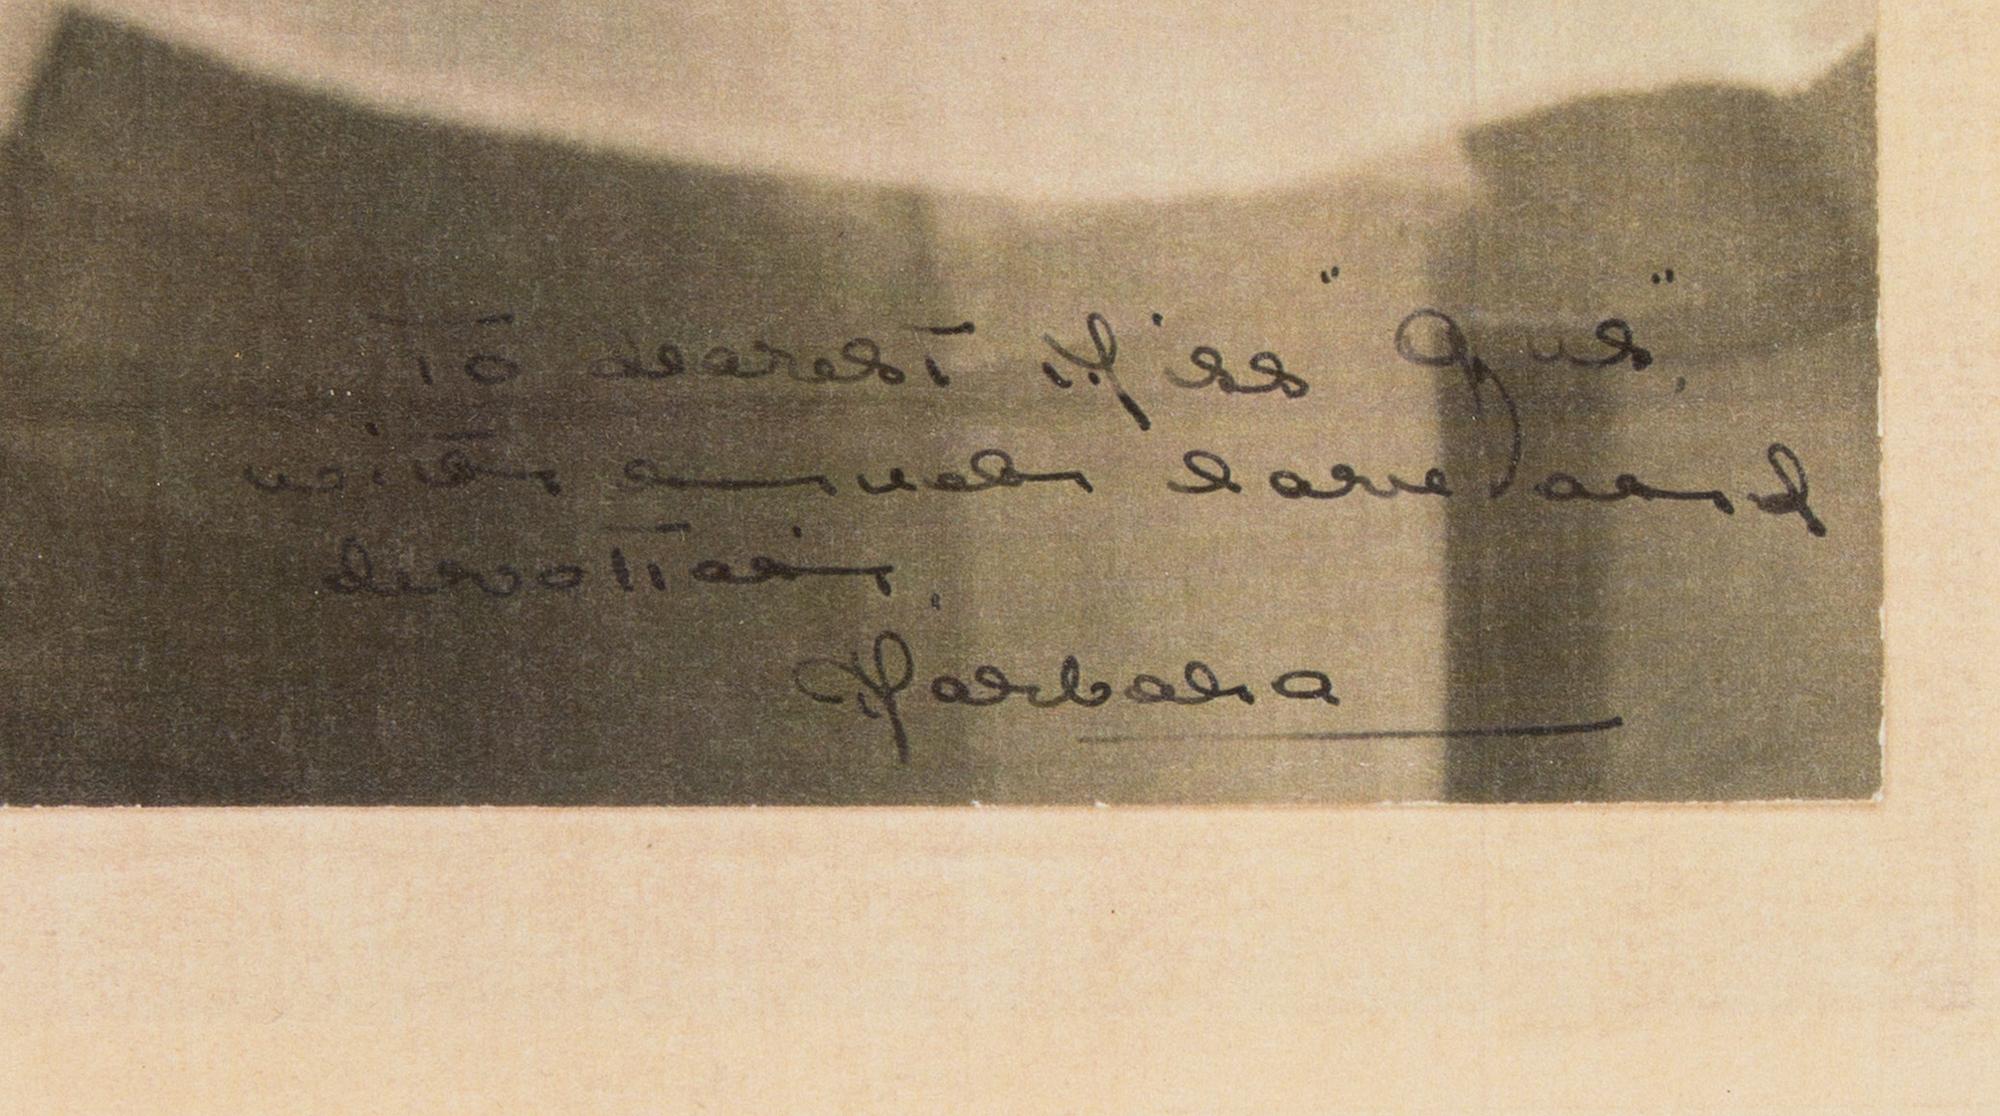 To dearest Miss "Gus",
with much love and
devotion.
Barbara